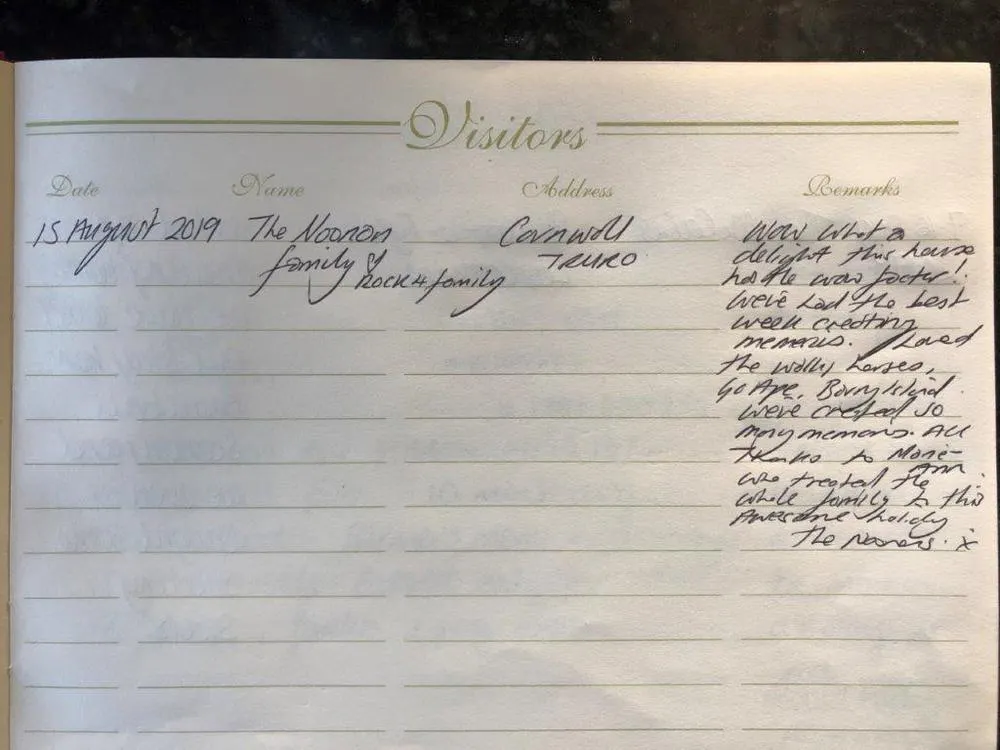 Visitors
Date Name Address Remarks
15 August 2019 The Noonan Cornwall Wow what a
family & TRURO delight this house
Rock 4 family has the wow factor!
weve had the best
week creating
memoris. Loved
the wally horses,
Go Ape, Barry Island.
weve created so
many memoris. All
thanks to Marie-
Ann
who treated the
whole family to this
Awesome holidy
The Noonans. x